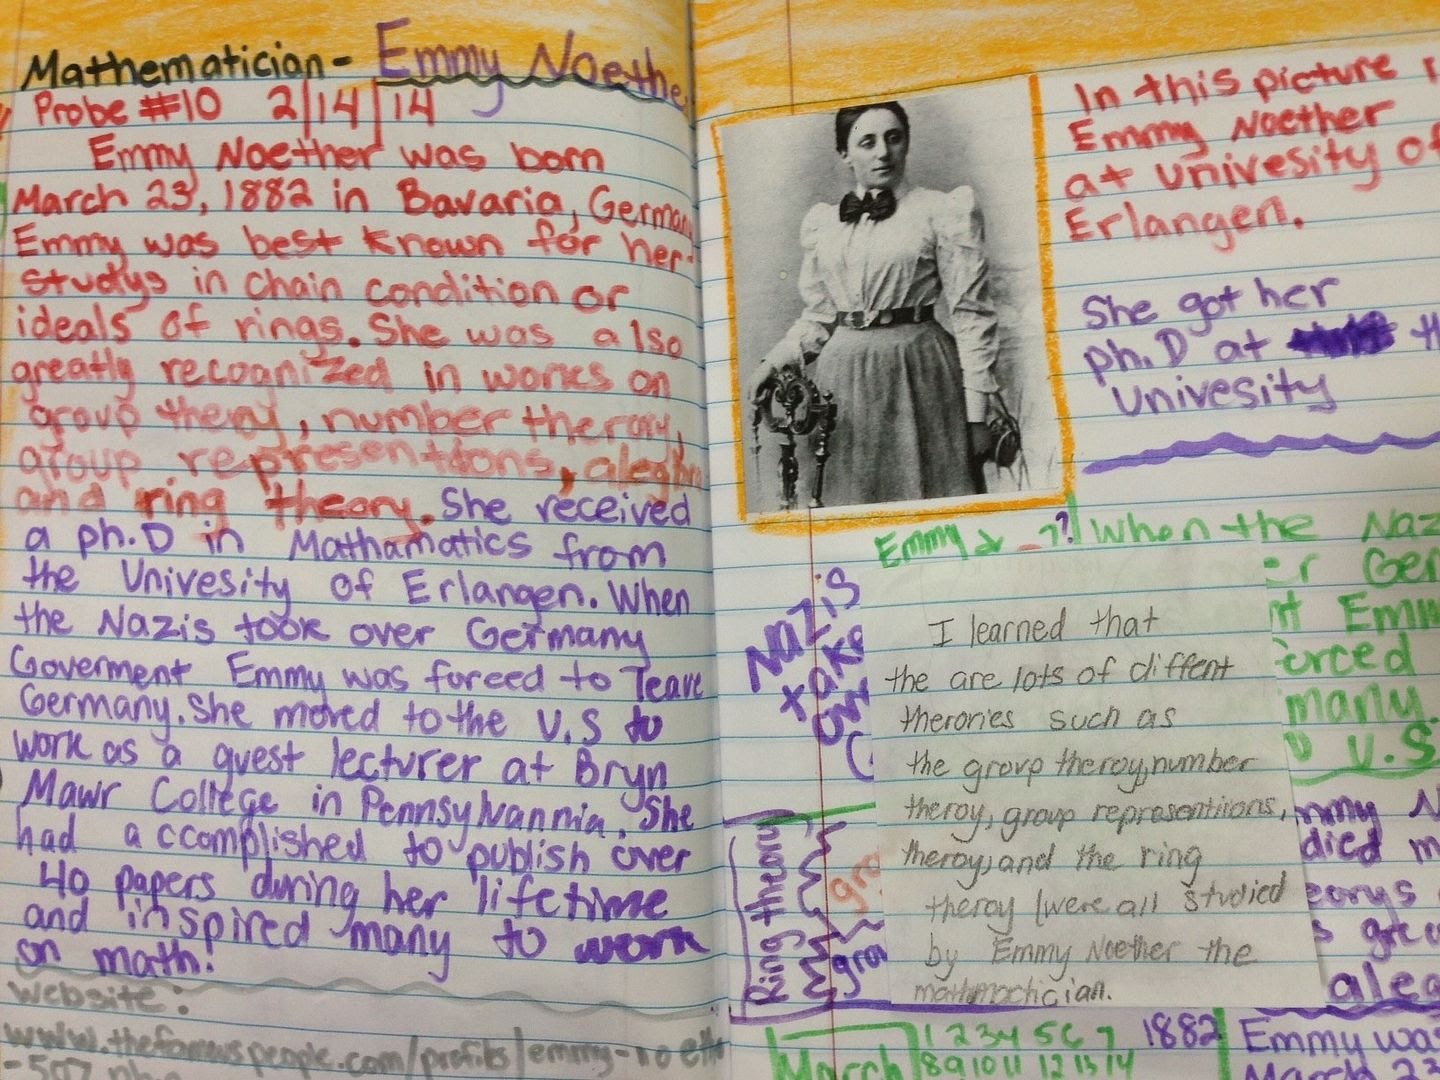 Mathematician- Emmy Noethe
Probe #10 2/14/14
Emmy Noether was born
March 23, 1882 in Bavaria, German
Emmy was best known for her
studys in chain condition or
ideals of rings. She was also
greatly recognized in works on
group theroy, number theroy,
group representtions, alegbra
and ring theory. She received
a ph.D in Mathamatics from
the Univesity of Erlangen. When
the Nazis took over Germany
Goverment Emmy was forced to leave
Germany. She moved to the U.S to
work as a guest lecturer at Bryn
Mawr College in Pennsylvannia. She
had accomplished to publish over
40 papers during her lifetime
and inspired many to work
on math!
website:
www.thefamouspeople.com/profiles/emmy-noethe
-507.php
In this picture
Emmy Noether
at univesity of
Erlangen.
She got her
ph.D at th
Univesity
Emmy ??
When the Naz
er Ger
nt Emm
orced
many.
U.S
Nazis
take
I learned that
the are lots of diffent
therories such as
the group theroy, number
theroy, group representiions,
theroy, and the ring
theroy (were all studied
by Emmy Noether the
mathmactician.
Ring theory
gro
grou
mmy N
died m
eorys
s gre
aleg
March
1 2 3 4 5 6 7
8 9 10 11 12 13 14
1882
Emmy was
March 23